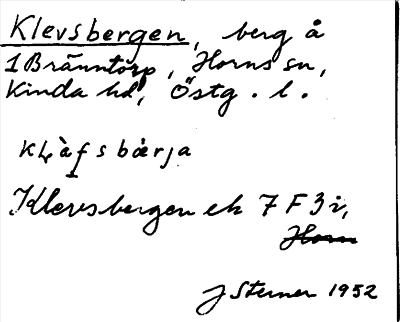 Klevsbergen, berg å
1 Bränntorp, Horns sn,
Kinda hd, Östg. l.
kḷàfsbärja
Klevsbergen ek 7 F 3 i,
Horn
J Sterner 1952